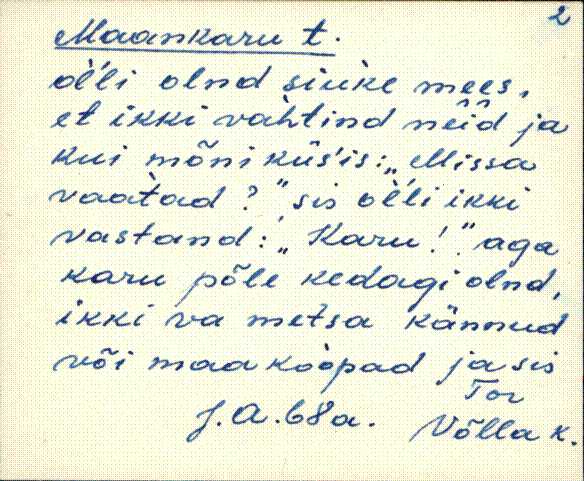 2
Maankaru t.
oĺĺi olnd siuke mees,
et ikki vahtind neid ja
kui mõni küśis: „Missa
vaatad?" sis oĺĺi ikki
vastand: „Karu!" aga
karu põle kedagi olnd,
ikki va metsa kännud
või maa koopad ja sis
J. A. 68a.
Tor
Võlla k.